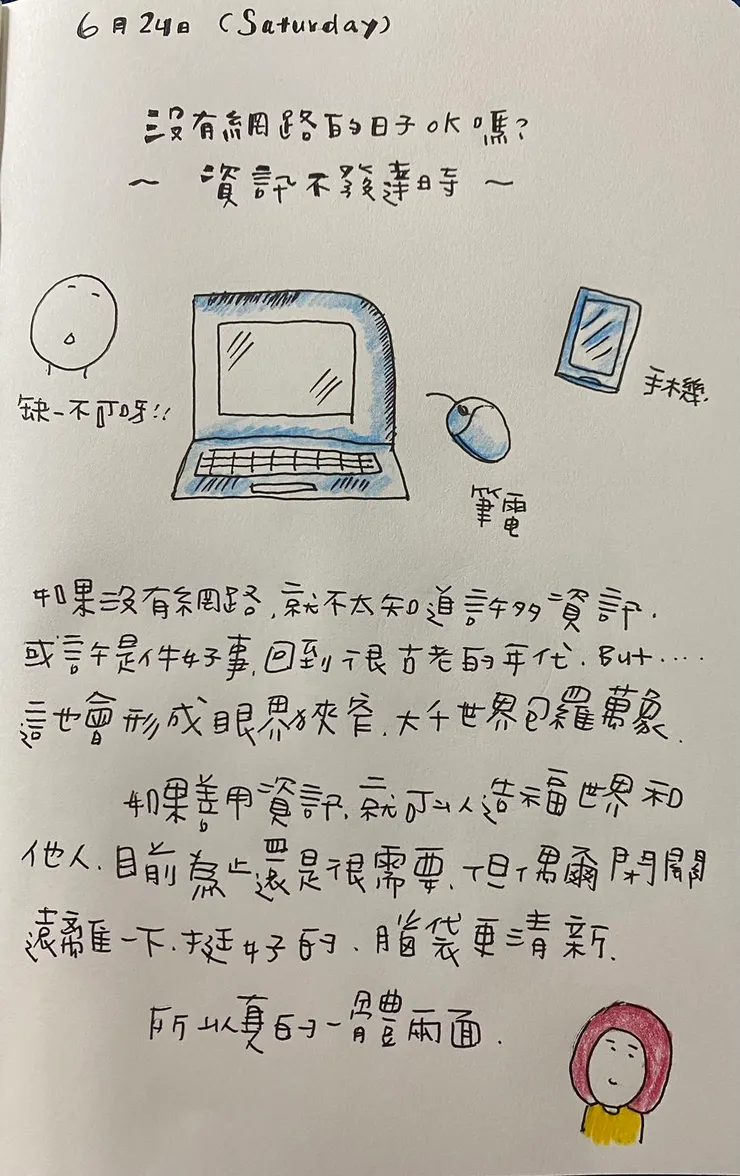 6月24日 (Saturday)
沒有網路的日子OK嗎?
~ 資訊不發達時 ~
缺一不可呀!!
手機
筆電
如果沒有網路,就不太知道許多資訊.
或許是件好事,回到很古老的年代. But....
這也會形成眼界狹窄,大千世界包羅萬象.
如果善用資訊,就可以造福世界和
他人.目前為止還是很需要,但偶爾開關
遠離一下.挺好的、腦袋更清新.
所以真的一體兩面.